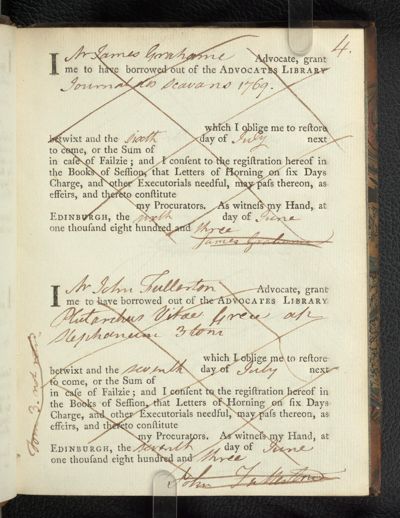 4.
I Mr James Grahame Advocate, grant
me to have borrowed out of the ADVOCATES LIBRARY
Journal des Scavans 1769.
which I oblige me to reſtore
betwixt and the sixth day of July next
to come, or the Sum of
in caſe of Failzie; and I conſent to the regiſtration hereof in
the Books of Seſſion, that Letters of Horning on ſix Days
Charge, and other Executorials needful, may paſs thereon, as
effeirs, and thereto conſtitute
my Procurators. As witneſs my Hand, at
EDINBURGH, the sixth day of June
one thouſand eight hundred and three
James Grahame
I Mr John Fullerton Advocate, grant
me to have borrowed out of the ADVOCATES LIBRARY
Plutarchus Vitae Grece ap
Stephanum 3 tom
which I oblige me to reſtore
betwixt and the seventh day of July next
to come, or the Sum of
in caſe of Failzie; and I conſent to the regiſtration hereof in
the Books of Seſſion, that Letters of Horning on ſix Days
Charge, and other Executorials needful, may paſs thereon, as
effeirs, and thereto conſtitute
my Procurators. As witneſs my Hand, at
EDINBURGH, the seventh day of June
one thouſand eight hundred and three
John Fullerton
Tom 3. not